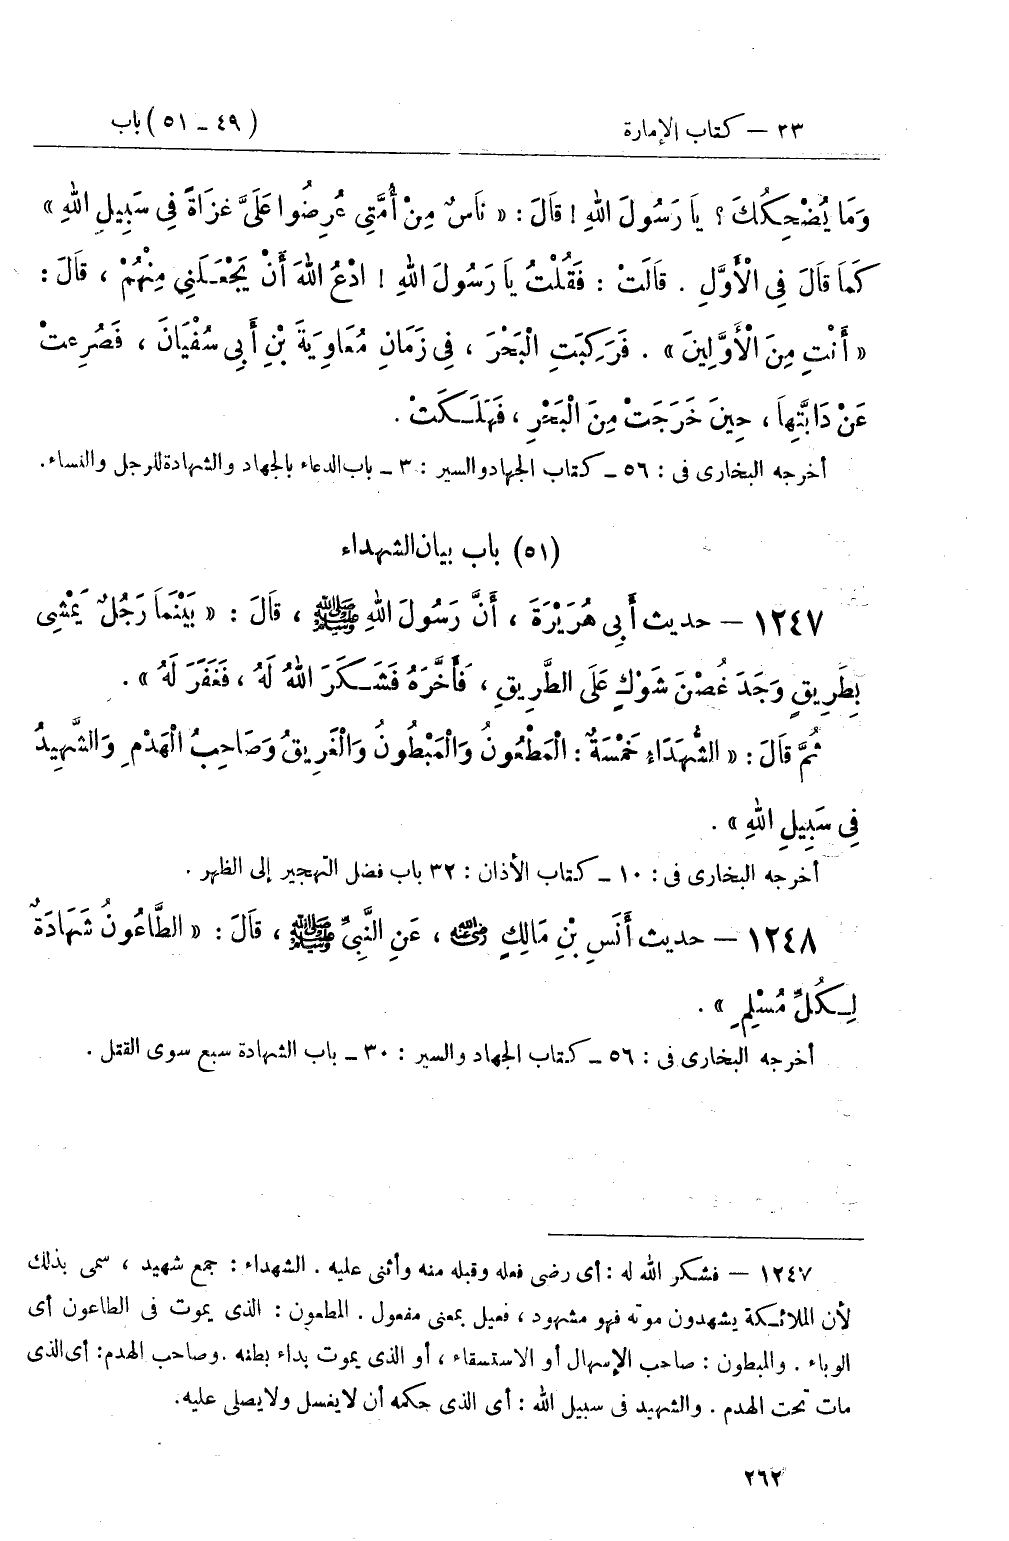 ٣٣ – كتاب الإمارة
(٤٩ – ٥١) باب
وَمَا يُضْحِكُكَ؟ يَا رَسُولَ اللهِ! قَالَ: «نَاسٌ مِنْ أُمَّتِي عُرِضُوا عَلَيَّ غزَاةً فِي سَبِيلِ اللهِ»
كَمَا قَالَ فِي الْأَوَّلِ. قَالَتْ: فَقُلْتُ يَا رَسُولَ اللهِ! ادْعُ اللهَ أَنْ يَجْعَلَنِي مِنْهُمْ، قَالَ:
«أَنْتِ مِنَ الْأَوَّلِينَ». فَرَكِبَتِ الْبَحْرَ، فِي زَمَانِ مُعَاوِيَةَ بْنِ أَبِي سُفْيَانَ، فَصُرِعتْ
عَنْ دَابَّتِهاَ، حِينَ خَرَجَتْ مِنَ الْبَحْرِ، فَهَلَكَتْ.
أخرجه البخارى فى: ٥٦ – كتاب الجهاد والسير: ٣ – باب الدعاء بالجهاد والشهادة للرجل والنساء.
(٥١) باب بيان الشهداء
١٢٤٧ – حديث أَبِي هُرَيْرَةَ، أَنَّ رَسُولَ اللهِ ﷺ، قَالَ: «بَيْنَمَا رَجُلٌ يَمْشِى
بِطَرِيقٍ وَجَدَ غُصْنَ شَوْكٍ عَلَى الطَّرِيقِ، فَأَخَّرَهُ فَشَكَرَ اللهُ لَهُ، فَغَفَرَ لَهُ».
ثُمَّ قَالَ: «الشُّهَدَاءِ خَمْسَةٌ: الْمَطْعُونُ وَالْمَبْطُونُ وَالْغَرِيقُ وَصَاحِبُ الْهَدْمِ وَالشَّهِيدُ
فِى سَبِيلِ اللهِ».
أخرجه البخارى فى: ١٠ – كتاب الأذان: ٣٢ باب فضل التهجير إلى الظهر.
١٢٤٨ – حديث أَنَسِ بْنِ مَالِكٍ رضي الله عنه، عَنِ النَّبِيِّ ﷺ، قَالَ: «الطَّاعُونُ شَهَادَةٌ
لِكُلِّ مُسْلِمٍ».
أخرجه البخارى فى: ٥٦ – كتاب الجهاد والسير: ٣٠ – باب الشهادة سبع سوى القتل.
١٢٤٧ – فشكر الله له: أى رضى فعله وقبله منه وأثنى عليه. الشهداء: جمع شهيد، سمى بذلك
لأن الملائكة يشهدون موته فهو مشهود، فعيل بمعنى مفعول. المطعون: الذى يموت فى الطاعون أى
الوباء. والمبطون: صاحب الإسهال أو الاستسقاء، أو الذى يموت بداء بطنه. وصاحب الهدم: أى الذى
مات تحت الهدم. والشهيد فى سبيل الله: أى الذى حكمه أن لا يغسل ولا يصلى عليه.
٢٦٢